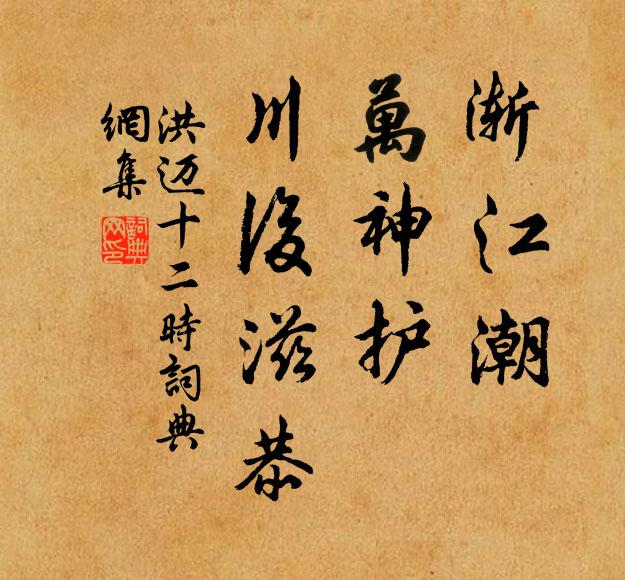 渐江潮
萬神护
川後滋恭
洪迈十二時詞典
網集
詞典
网印